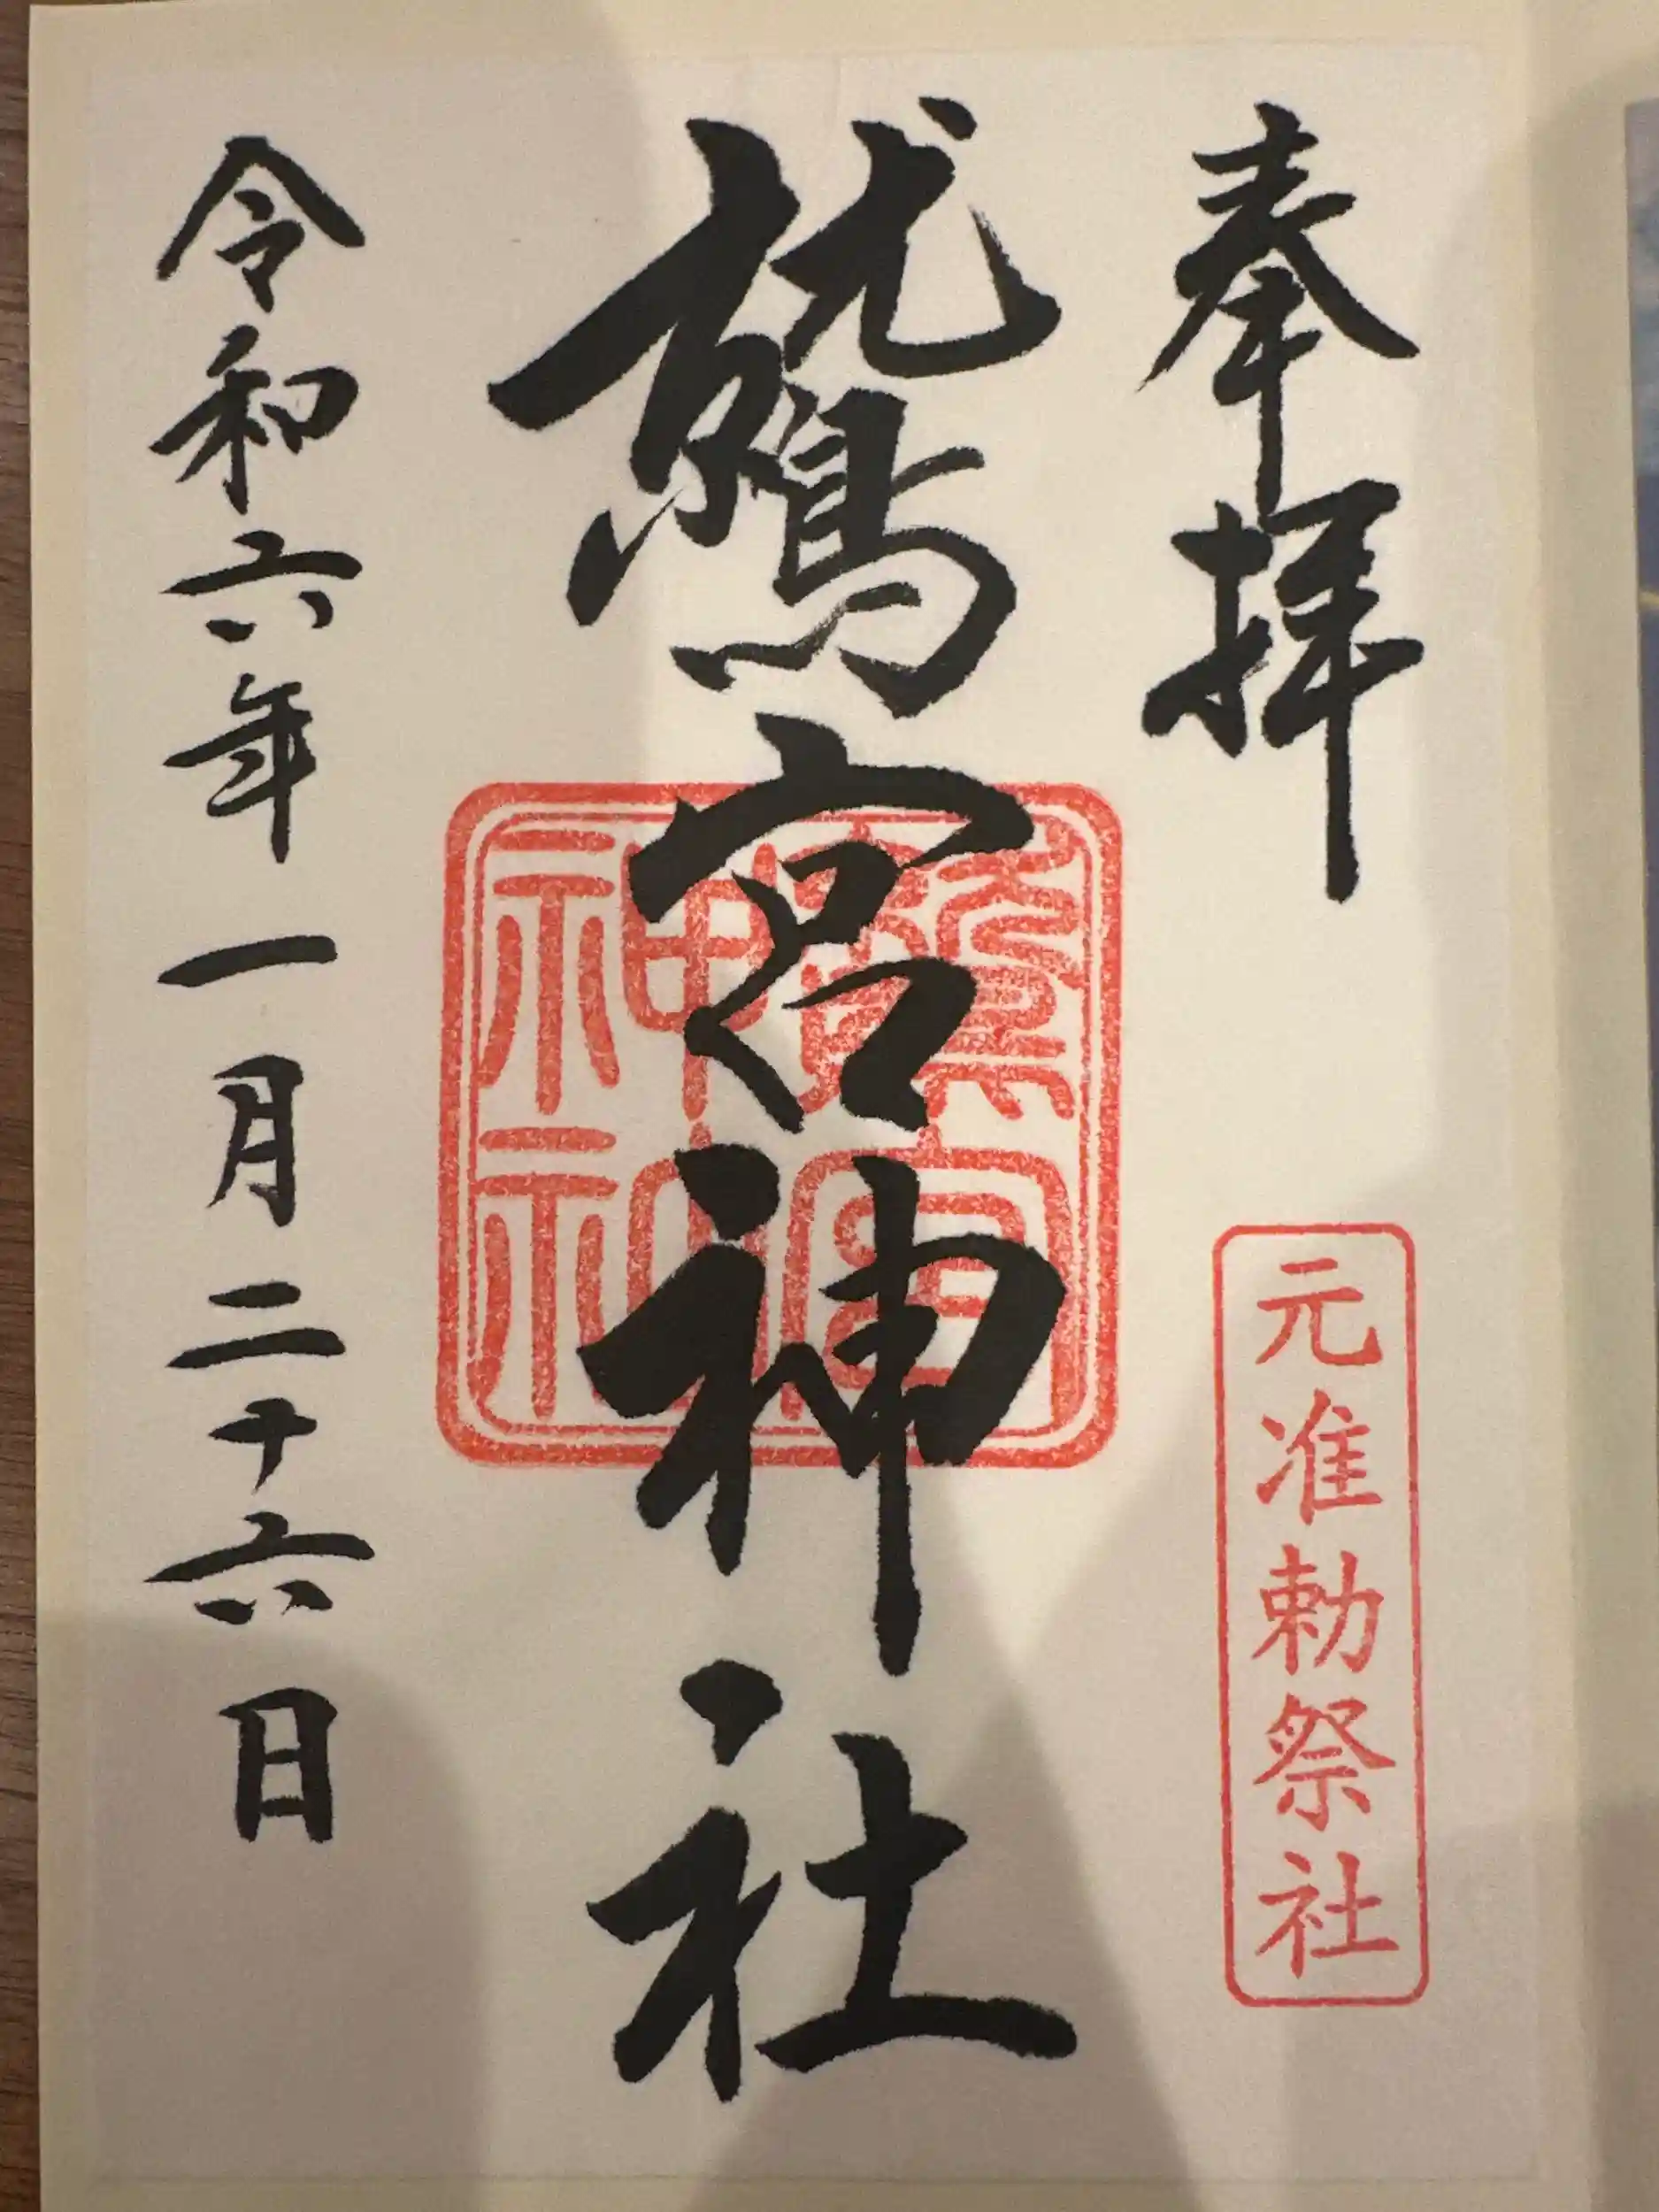 奉拝
元准勅祭社
鷲宮神社
鷲宮
神社
令和六年一月二十六日